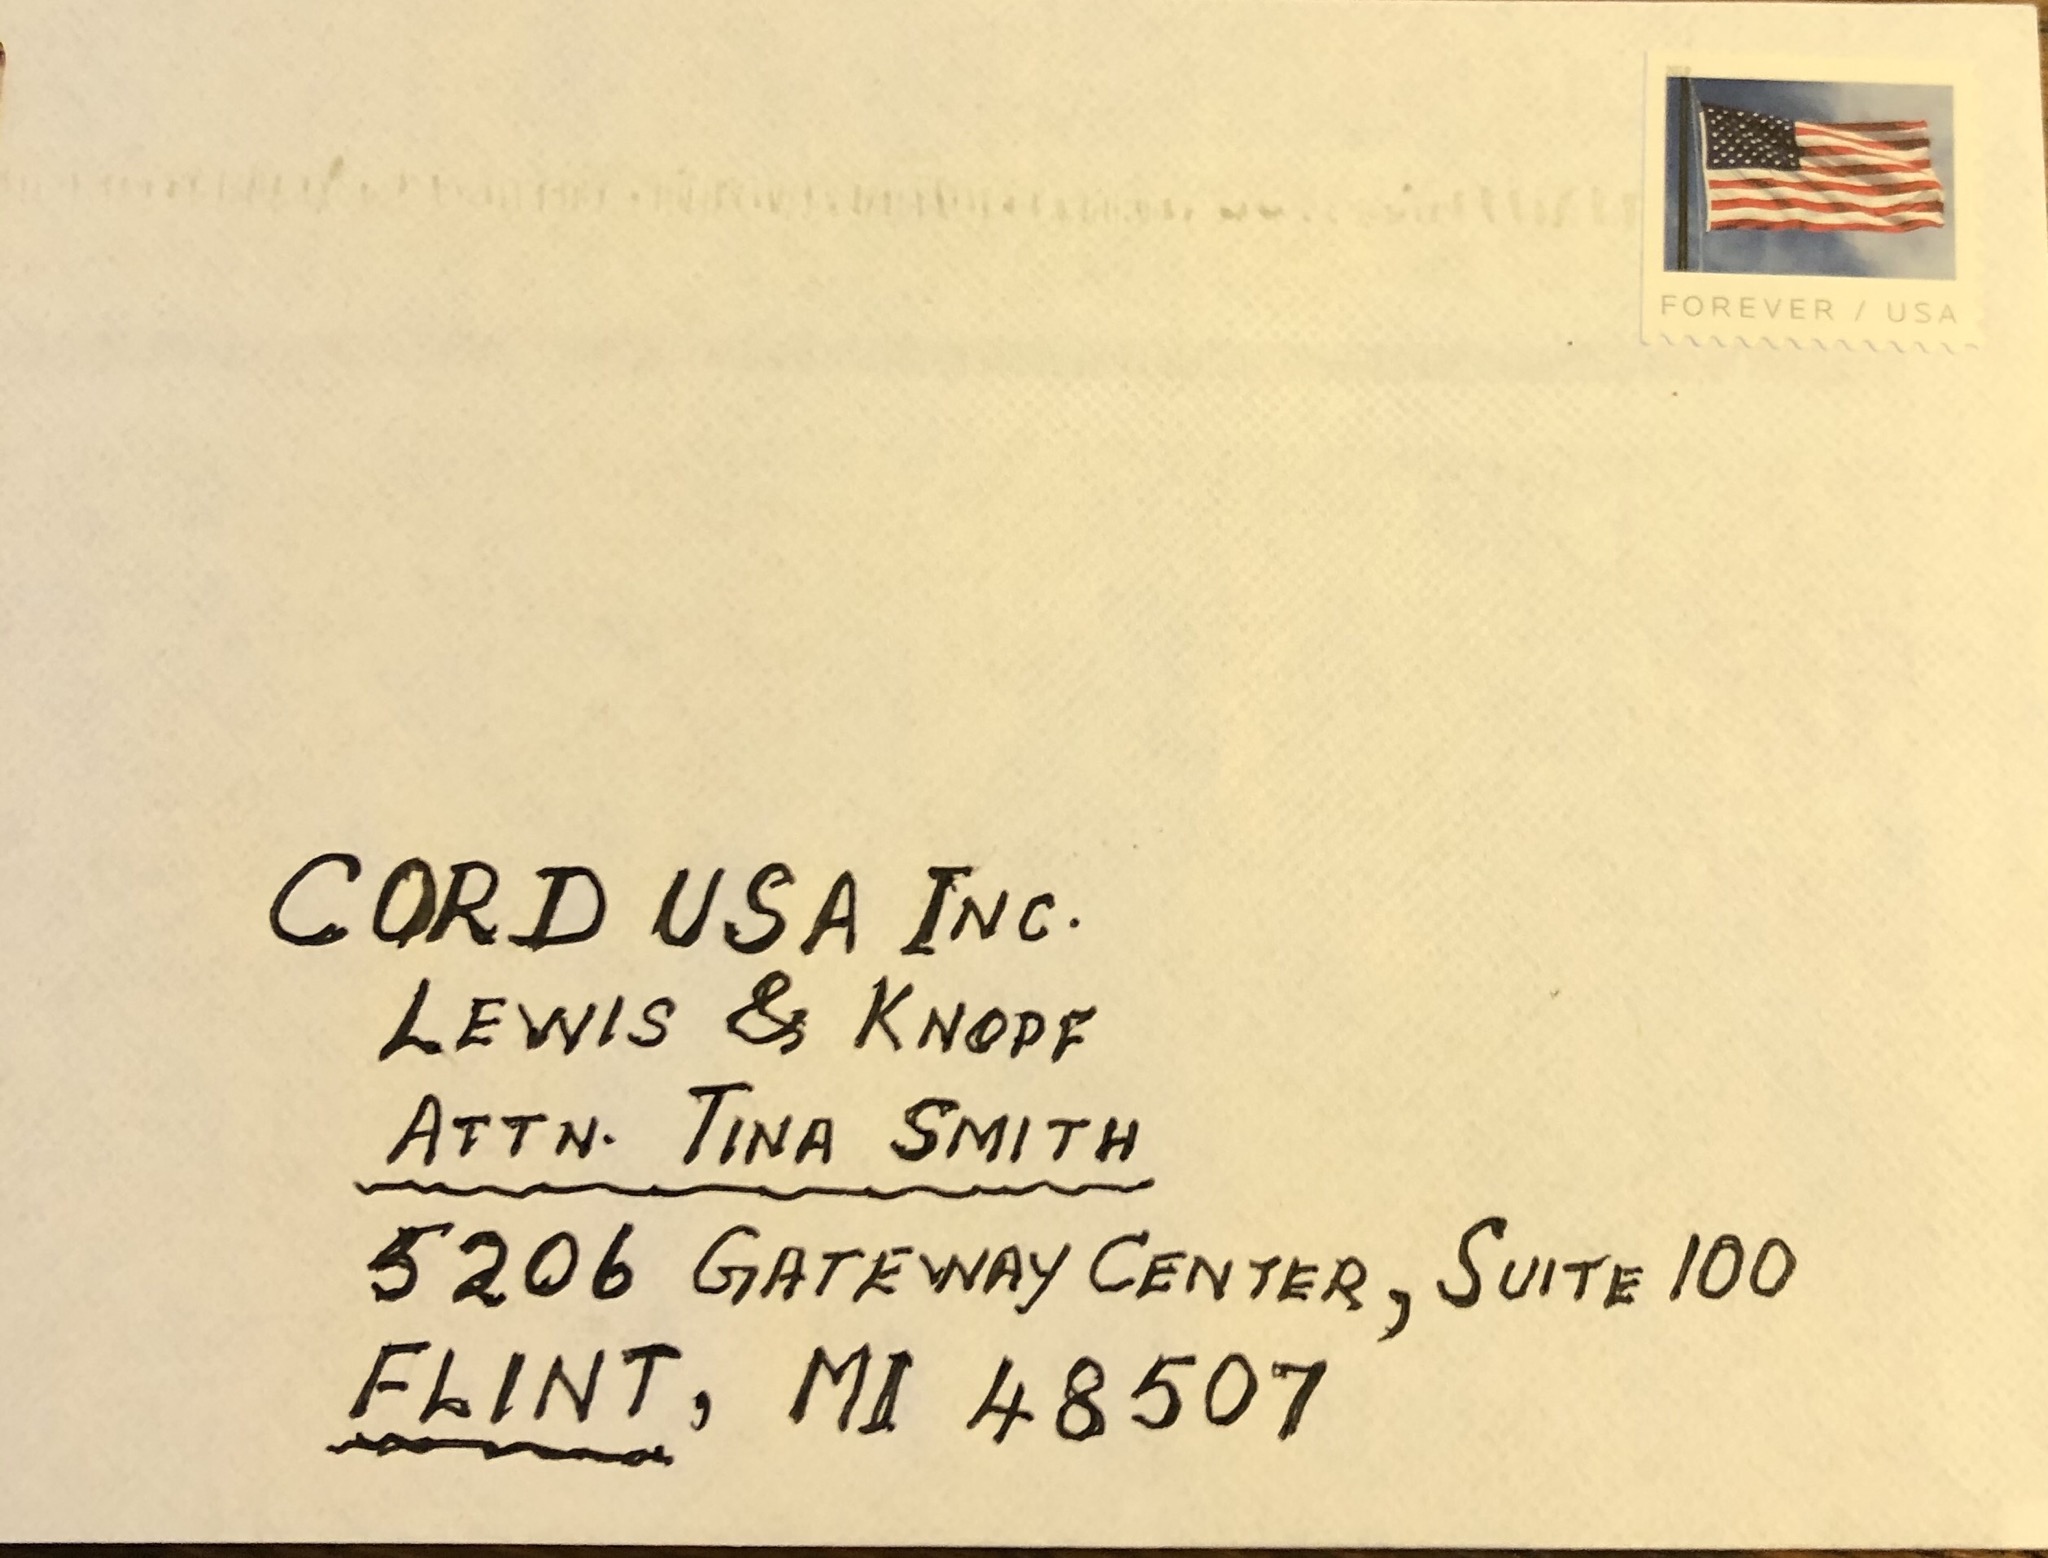 FOREVER / USA
CORD USA INC.
LEWIS & KNOPF
ATTN. TINA SMITH
5206 GATEWAY CENTER, SUITE 100
FLINT, MI 48507